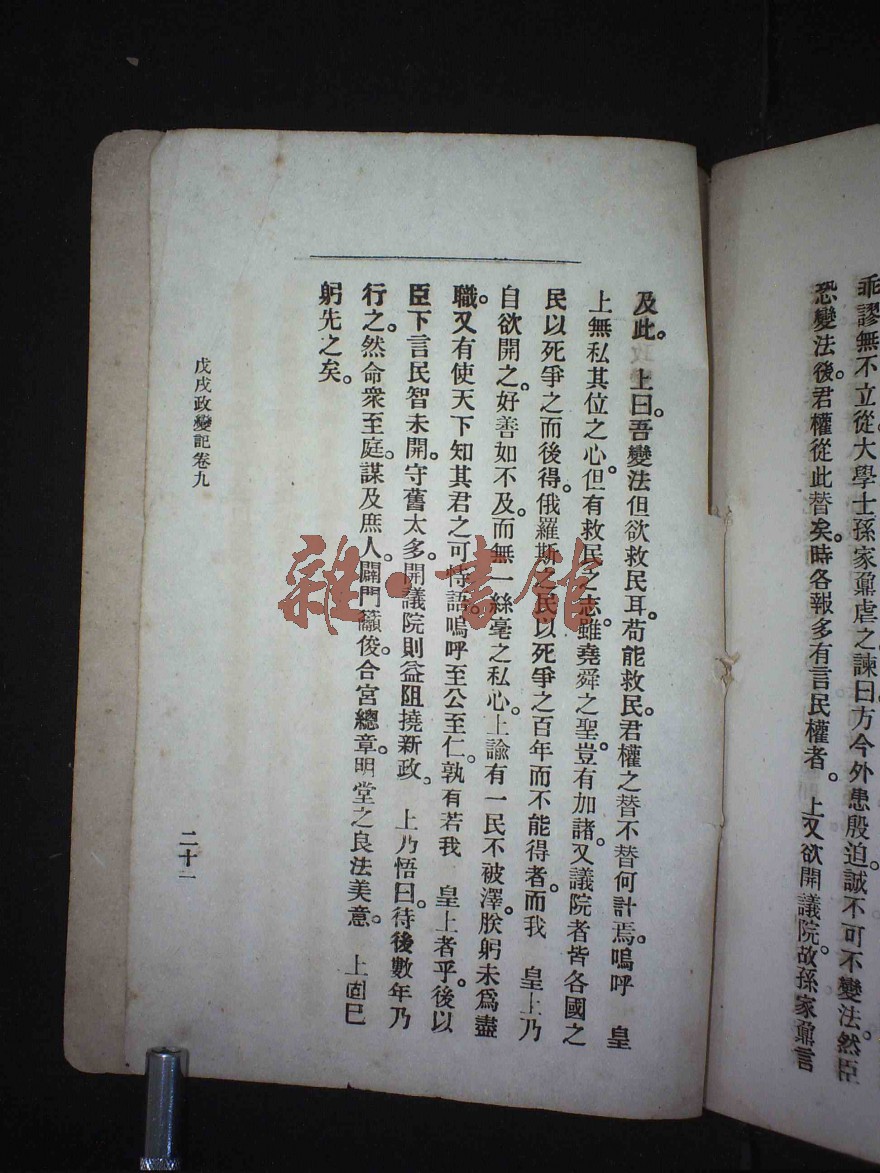 乖謬無不立從。大學士孫家鼐虐之諫曰方今外患殷迫誠不可不變法。然臣
恐變法後。君權從此替矣。時各報多有言民權者。　上又欲開議院。故孫家鼐言
及此。　上曰。吾變法但欲救民耳。苟能救民。君權之替不替何計焉。嗚呼　皇
上無私其位之心。但有救民之志。雖堯舜之聖。豈有加諸。又議院者皆各國之
民以死爭之而後得。俄羅斯之民以死爭之百年而不能得者。而我　皇上乃
自欲開之。好善如不及。而無一絲毫之私心。上諭有一民不被澤。朕躬未爲盡
職。又有使天下知其君之可恃語。嗚呼至公至仁。孰有若我　皇上者乎。後以
臣下言民智未開。守舊太多。開議院則益阻撓新政。　上乃悟曰。待後數年乃
行之。然命衆至庭。謀及庶人。闢門籲俊。合宮總章明堂之良法美意。　上固已
躬先之矣。
戊戌政變記卷九
二十一
雜·書館